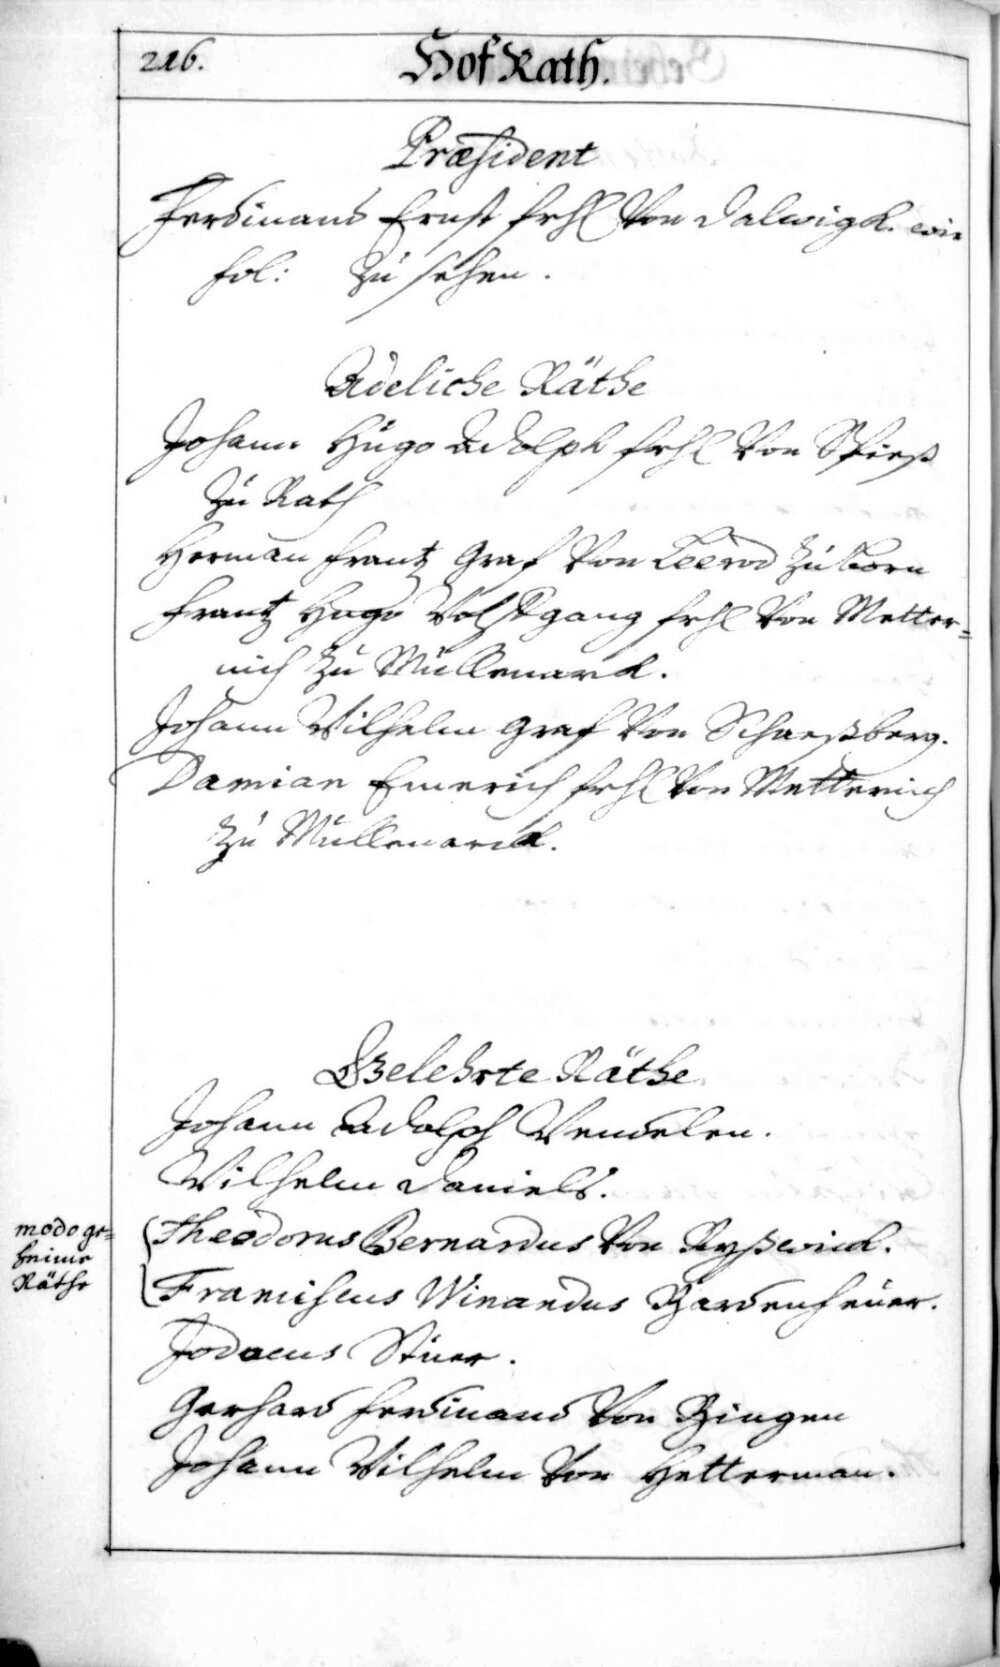 216.
HofRath.
Præsident
Ferdinand Ernst frhl von Dalwigk. wie
fol: zu sehen.
Adeliche Räthe
Johann Hugo Adolph frhl von Spieß
zu Rath
Herman frantz Graf von Leerod zu born
frantz Hugo Wolfgang frhl von Metter=
nich zu Müllenarck.
Johann Wilhelm Graf von Schaeßberg.
Damian Emerich frhl von Metternich
zu Müllenarck.
Gelehrte Räthe
Johann Adolph Wendelen.
Wilhelm Daniels.
modo ge=
heime
Räthe
Theodorus Bernardus von Ryßwick.
Franciscus Winandus Bardenheüer.
Jodocus Stüer.
Gerhard ferdinand von Bingen
Johann Wilhelm von Hetterman.